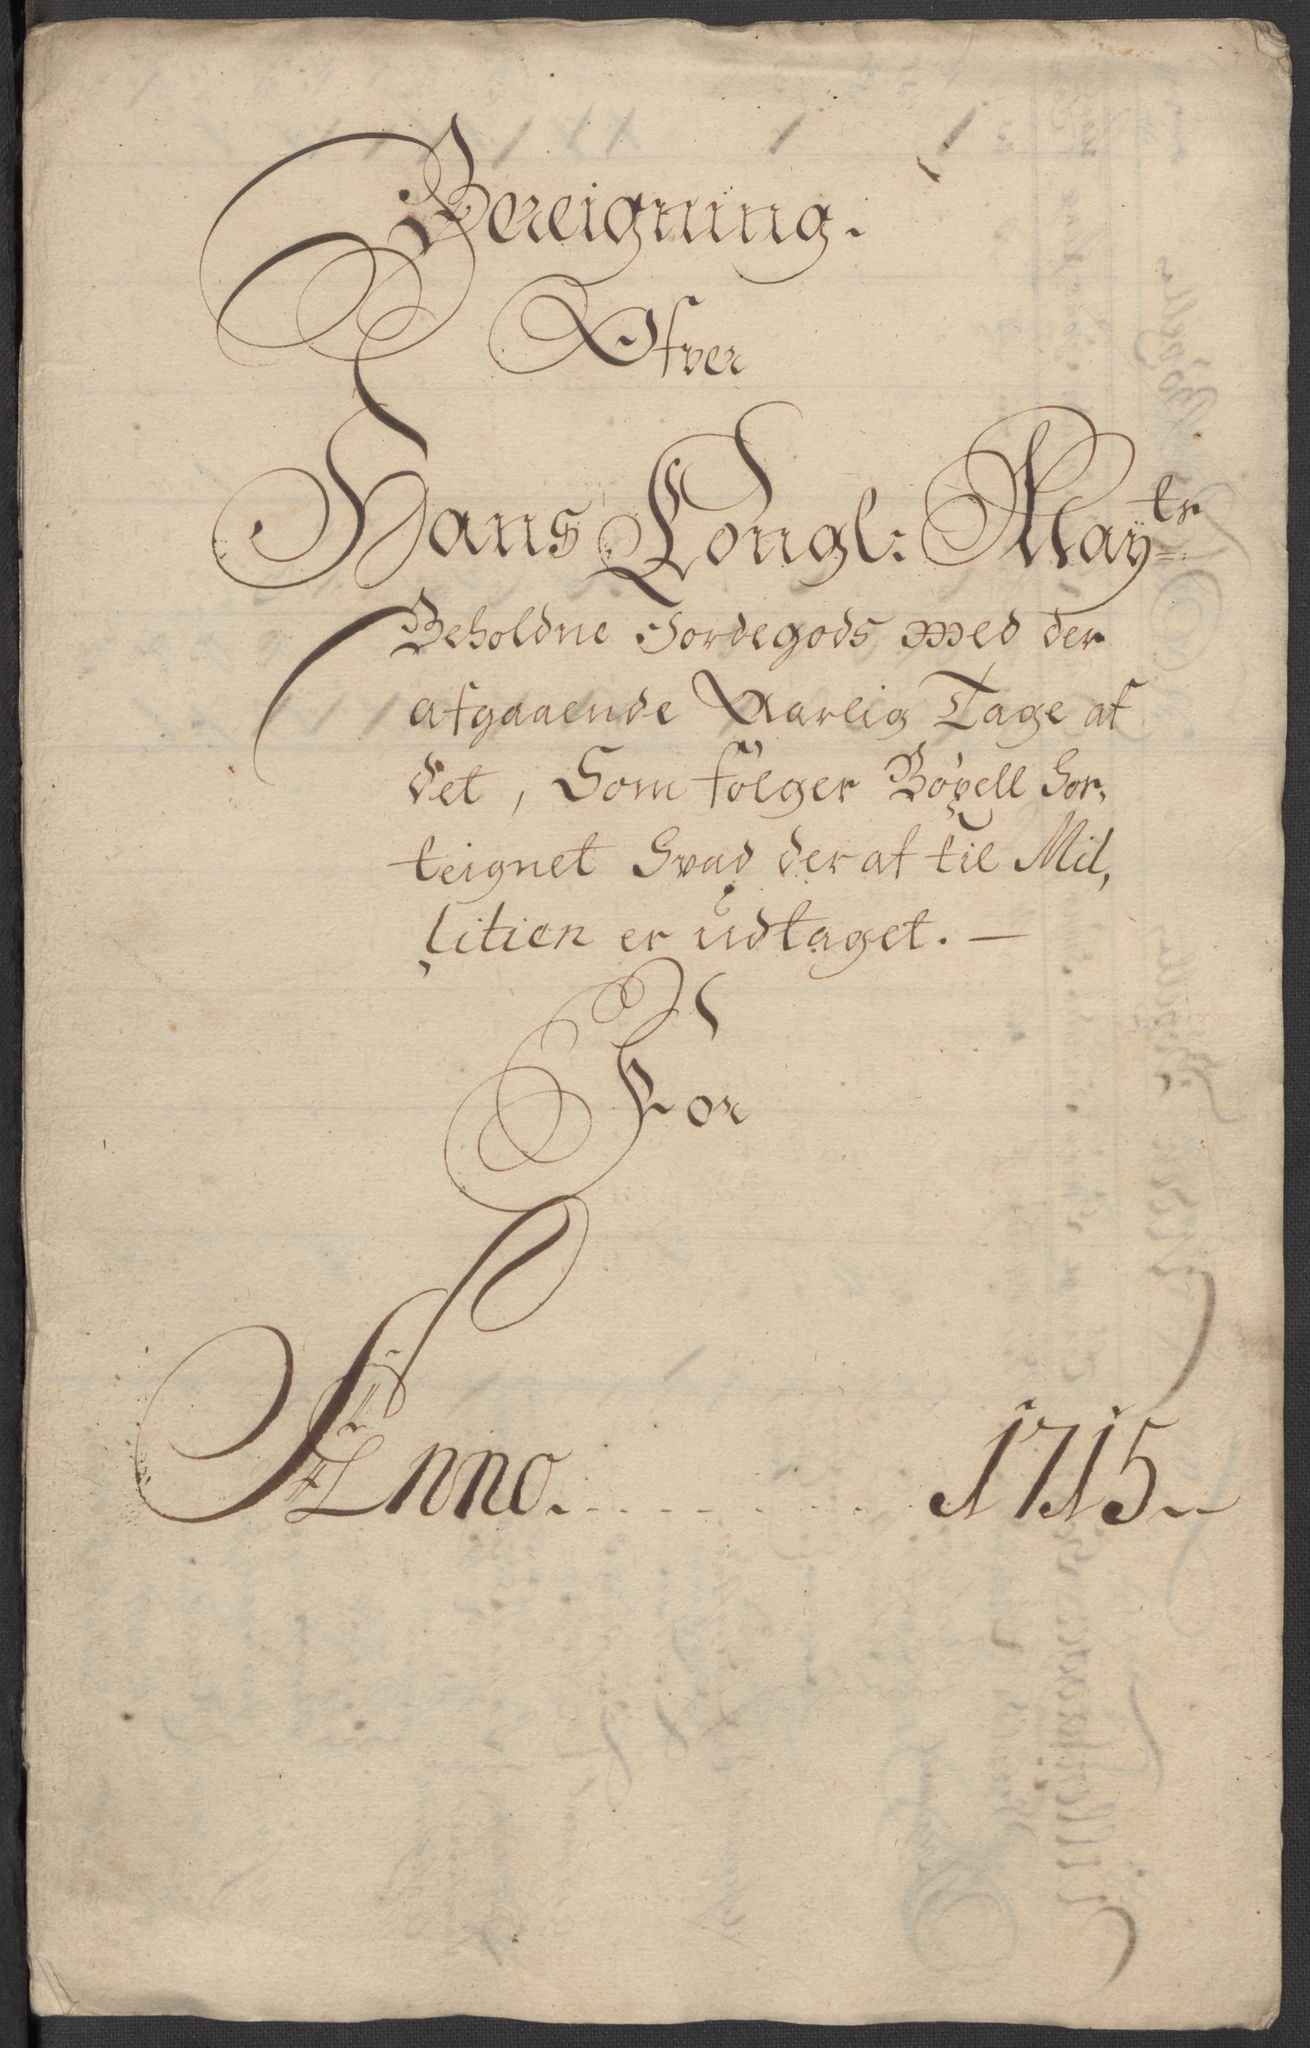 Bereigning.
Ofver
Hans Kongl: May<sup>ts</sup>
Beholdne Jordegods med der
afgaaende Aarlig Tage af
det, Som følger Bøxell For,
teignet Hvad der af til Mil,
litien er udtaget. —
For
Anno. . . . . . . . . 1715..